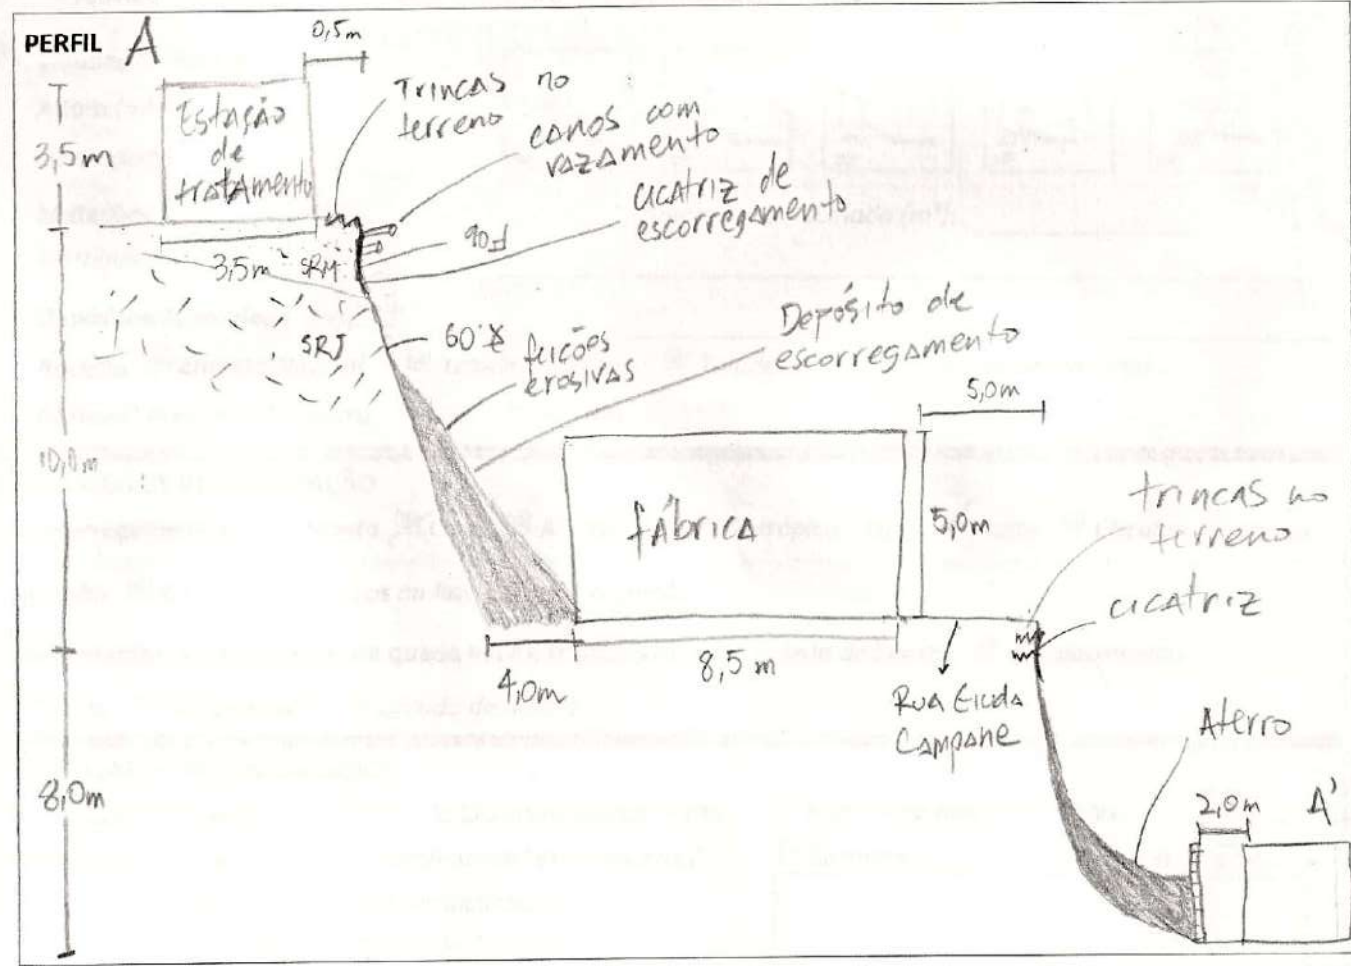 PERFIL A
0,5m
Estação
de
tratamento
3,5m
Trincas no
terreno
canos com
vazamento
cicatriz de
escorregamento
90º
3,5m
SRM
SRJ
60º
feições
erosivas
Depósito de
escorregamento
10,0m
5,0m
fábrica
5,0m
trincas no
terreno
cicatriz
4,0m
8,5 m
Rua
Campane
Aterro
8,0m
2,0m
A'